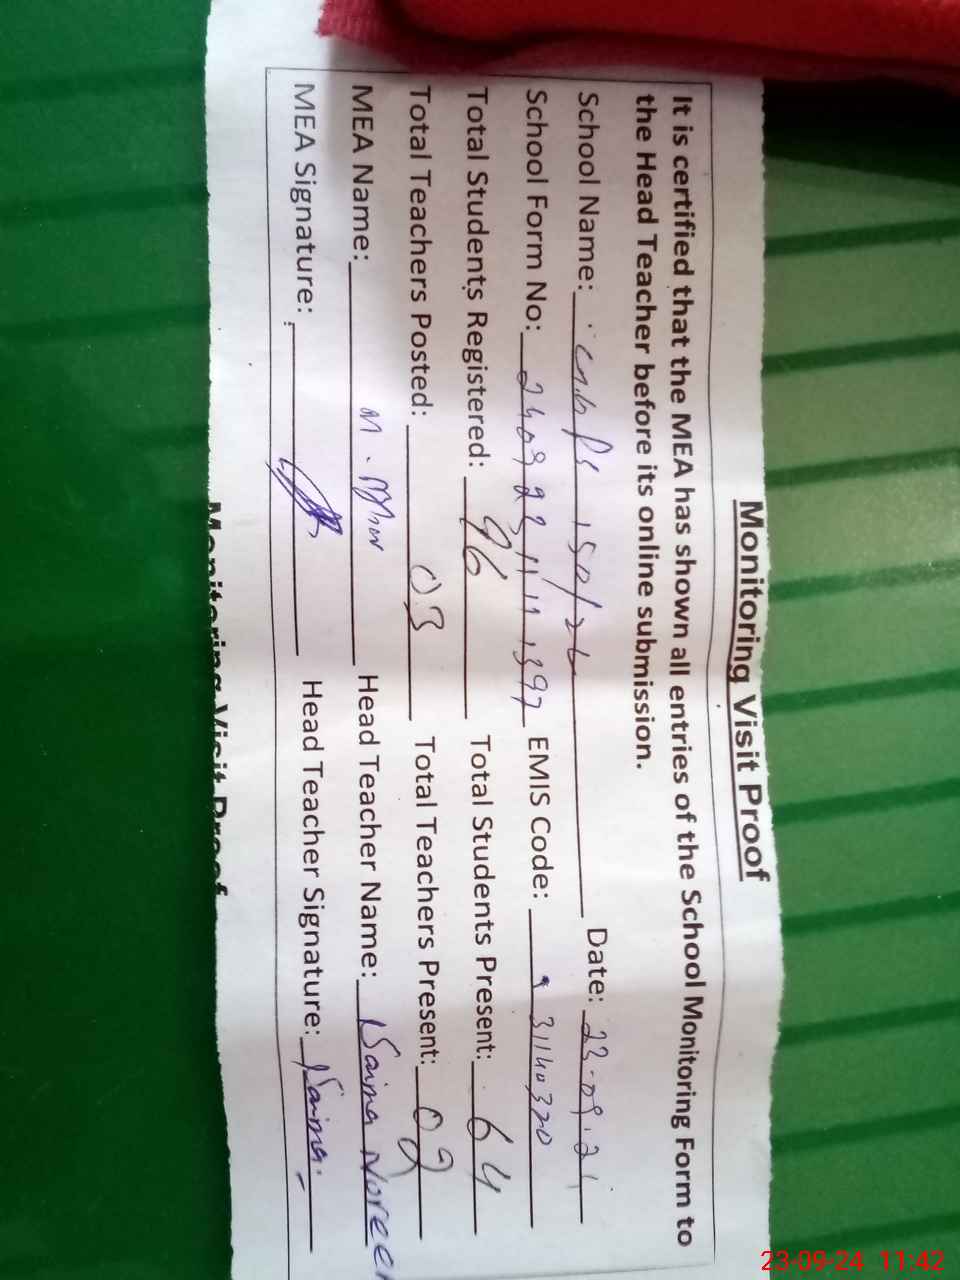 Monitoring Visit Proof
It is certified that the MEA has shown all entries of the School Monitoring Form to
the Head Teacher before its online submission.
School Name: 150/ Date: 23.09.24
School Form No: EMIS Code: 31140320
Total Students Registered: 96 Total Students Present: 64
Total Teachers Posted: 03 Total Teachers Present: 02
MEA Name: M. Head Teacher Name: Naima Noreen
MEA Signature: Head Teacher Signature: Naima
Monitoring Visit Proof
23-09-24 11:42